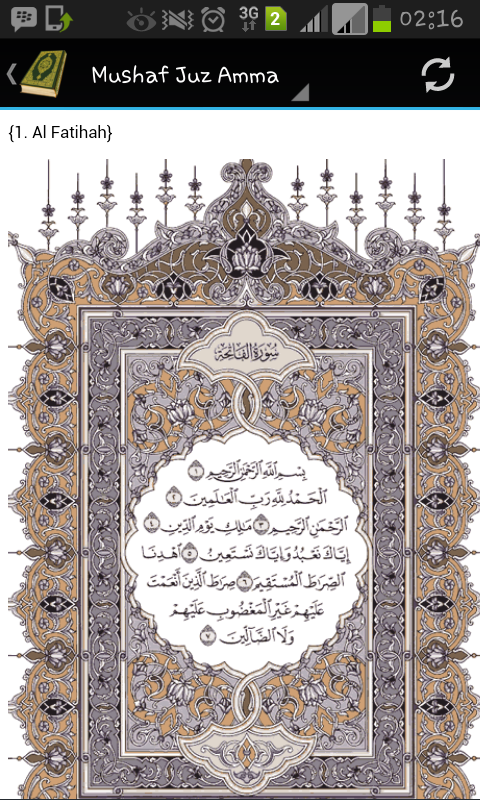 3G
2
02:16
Mushaf Juz Amma
{1. Al Fatihah}
سُورَةُ الفَاتِحَةِ
بِسْمِ اللَّهِ الرَّحْمَٰنِ الرَّحِيمِ ١
الْحَمْدُ لِلَّهِ رَبِّ الْعَالَمِينَ ٢
الرَّحْمَٰنِ الرَّحِيمِ ٣ مَالِكِ يَوْمِ الدِّينِ ٤
إِيَّاكَ نَعْبُدُ وَإِيَّاكَ نَسْتَعِينُ ٥ اهْدِنَا
الصِّرَاطَ الْمُسْتَقِيمَ ٦ صِرَاطَ الَّذِينَ أَنْعَمْتَ
عَلَيْهِمْ غَيْرِ الْمَغْضُوبِ عَلَيْهِمْ
وَلَا الضَّالِّينَ ٧